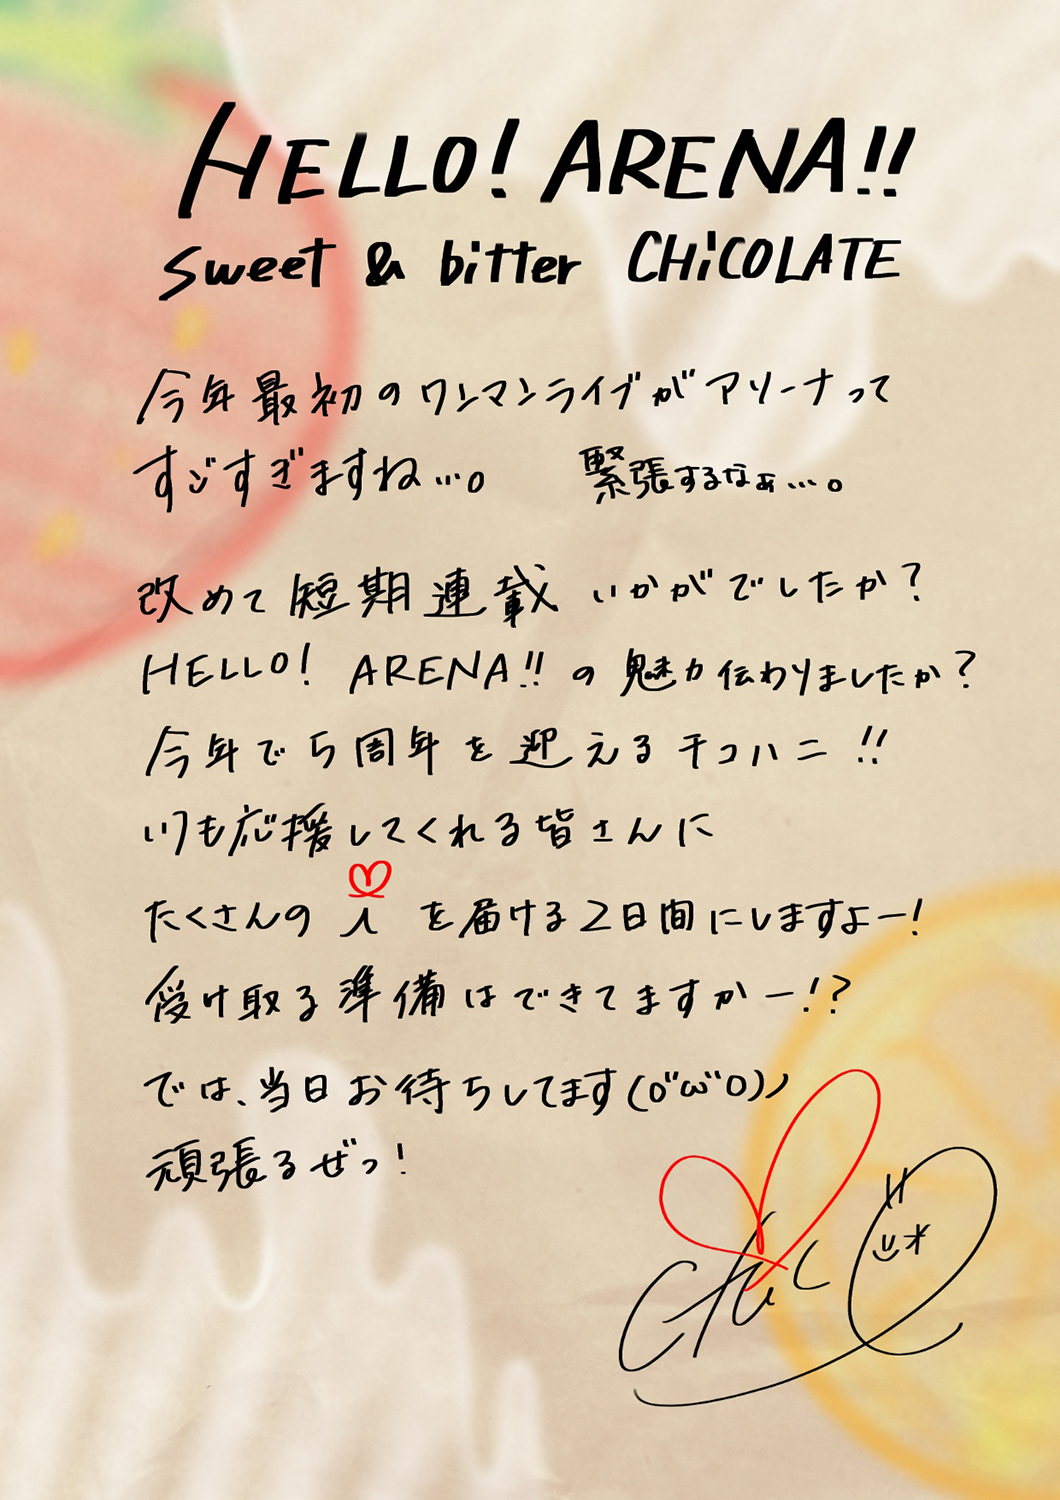 HELLO! ARENA!!
sweet & bitter CHiCOLATE
今年最初のワンマンライブがアリーナって
すごすぎますね…。 緊張するなぁ…。
改めて短期連載いかがでしたか?
HELLO! ARENA!!の魅力伝わりましたか?
今年で5周年を迎えるチコハニ!!
いつも応援してくれる皆さんに
たくさんの i を届ける2日間にしますよー!
受け取る準備はできてますかー!?
では、当日お待ちしてます(o"ω"o)ノ
頑張るぜっ!